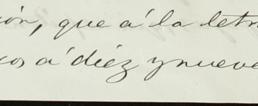 ión, que á la letra
cos á diéz y nueve